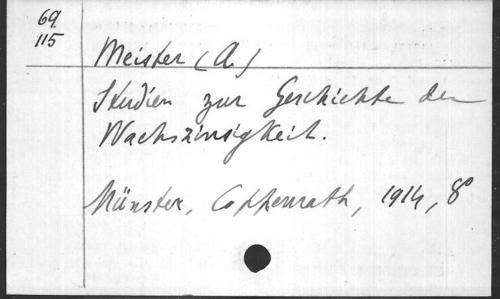 69.
115
Meister (A.)
Studien zur Geschichte der
Wachszinsigkeit.
Münster, Coppenrath, 1914, 8°